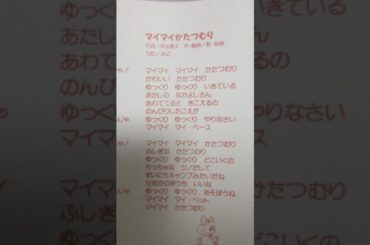 マイマイかたつむり
うた/みど
マイマイ マイマイ かたつむり
かわいい かたつむり
ゆっくり ゆっくり いきている
あたしの なかよしさん
あわててると きこえるの
のんびりしたこえが
ゆっくり ゆっくり やりなさい
マイマイ マイ・ペース
マイマイ マイマイ かたつむり
ふしぎな かたつむり
ゆっくり ゆっくり どこいくの
ちっちゃな ツノだして
まいにちキャンプみたいだね
せなかのおうち いいな
ゆっくり ゆっくり あそぼうね
マイマイ マイ・ペット
マイマイ かたつむり